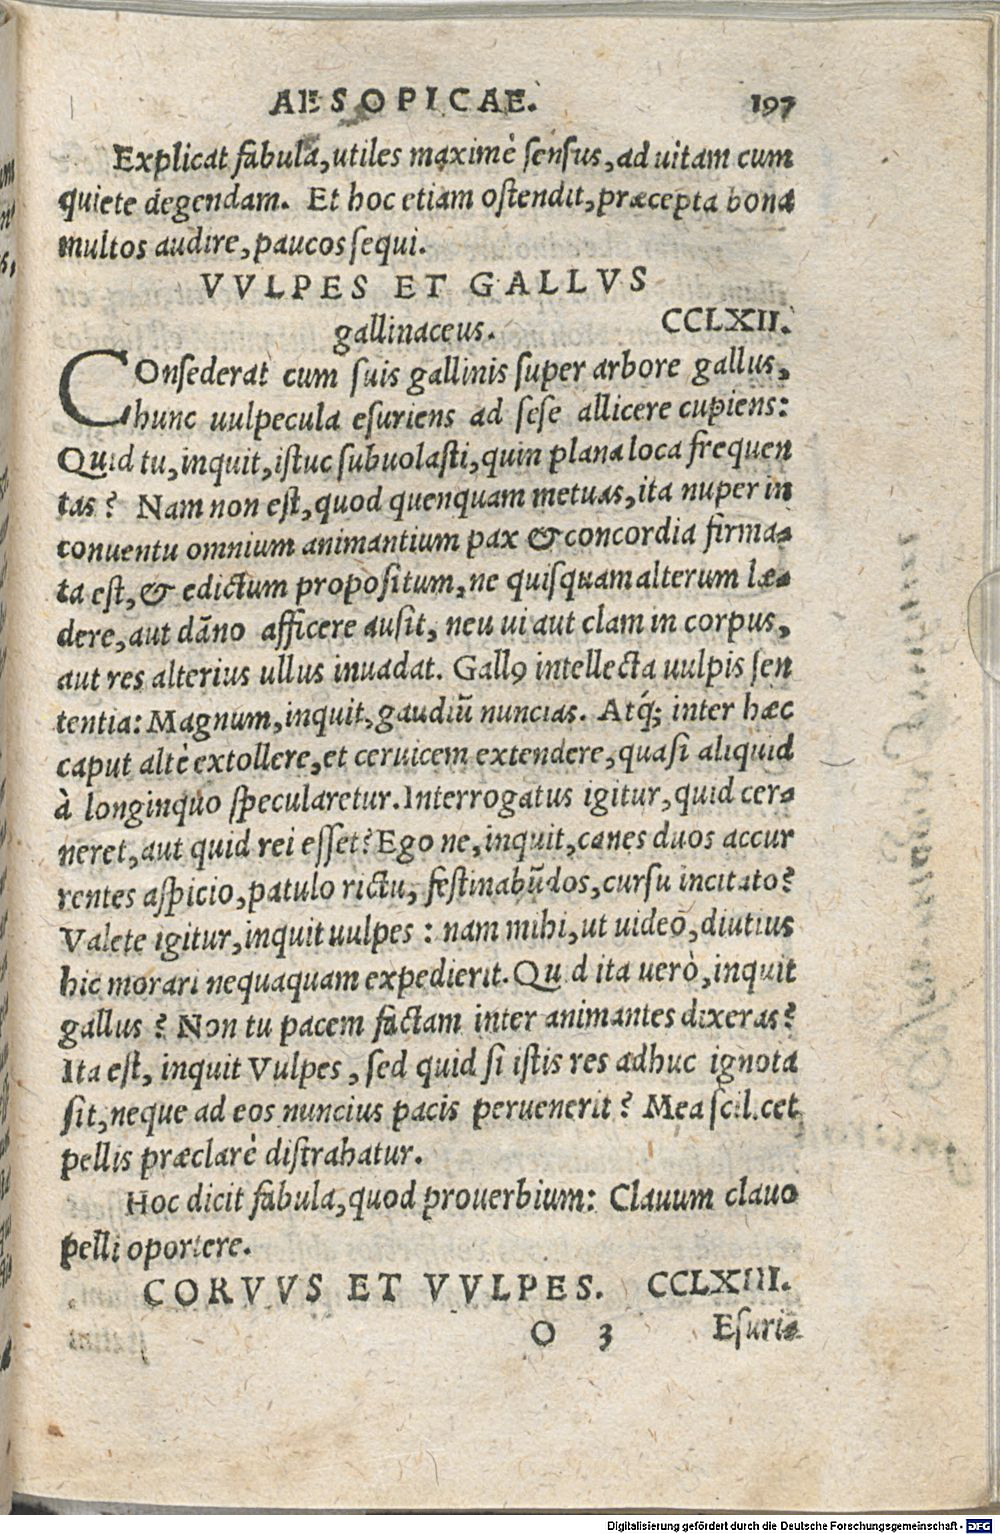 AESOPICAE. 197
Explicat fabula, utiles maximè sensus, ad uitam cum
quiete degendam. Et hoc etiam ostendit, præcepta bona
multos audire, paucos sequi.
VVLPES ET GALLVS
gallinaceus. CCLXII.
COnsederat cum suis gallinis super arbore gallus,
hunc uulpecula esuriens ad sese allicere cupiens:
Quid tu, inquit, istuc subuolasti, quin plana loca frequen
tas? Nam non est, quod quenquam metuas, ita nuper in
conuentu omnium animantium pax & concordia firma-
ta est, & edictum propositum, ne quisquam alterum læ-
dere, aut dāno afficere ausit, neu ui aut clam in corpus,
aut res alterius ullus inuadat. Gallꝰ intellecta uulpis sen
tentia: Magnum, inquit, gaudiū nuncias. Atq́; inter hæc
caput altè extollere, et ceruicem extendere, quasi aliquid
à longinquo specularetur. Interrogatus igitur, quid cer-
neret, aut quid rei esset? Ego ne, inquit, canes duos accur
rentes aspicio, patulo rictu, festinabūdos, cursu incitato?
Valete igitur, inquit uulpes: nam mihi, ut uideo, diutius
hic morari nequaquam expedierit. Quid ita uerò, inquit
gallus? Non tu pacem factam inter animantes dixeras?
Ita est, inquit Vulpes, sed quid si istis res adhuc ignota
sit, neque ad eos nuncius pacis peruenerit? Mea scilicet
pellis præclarè distrahatur.
Hoc dicit fabula, quod prouerbium: Clauum clauo
pelli oportere.
CORVVS ET VVLPES. CCLXIII.
O 3 Esuri-
Digitalisierung gefördert durch die Deutsche Forschungsgemeinschaft - DFG